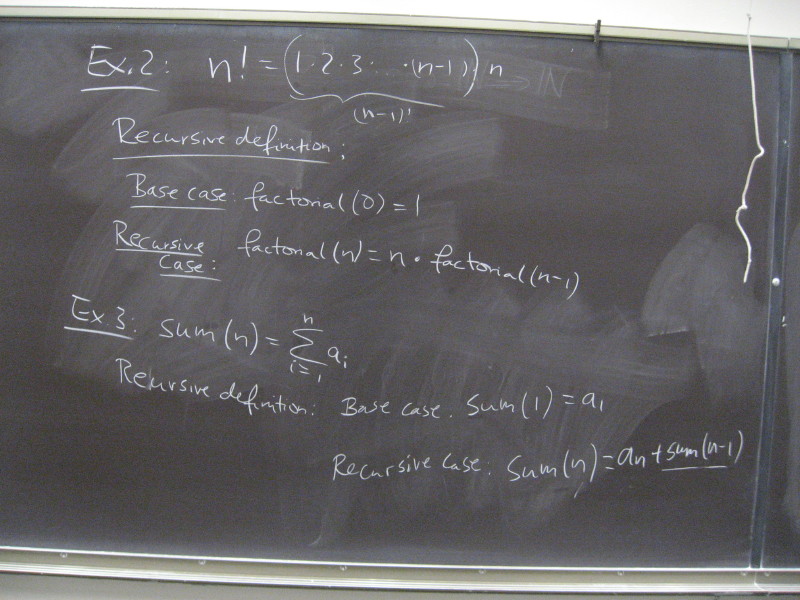 Ex. 2: n! = (1 · 2 · 3 · · · (n-1)) n
(n-1)!
Recursive definition:
Base case: factorial(0) = 1
Recursive factorial(n) = n · factorial(n-1)
Case:
Ex. 3: sum(n) = ∑ⁿᵢ₌₁ aᵢ
Recursive definition: Base case: sum(1) = a₁
Recursive case: sum(n) = aₙ + sum(n-1)